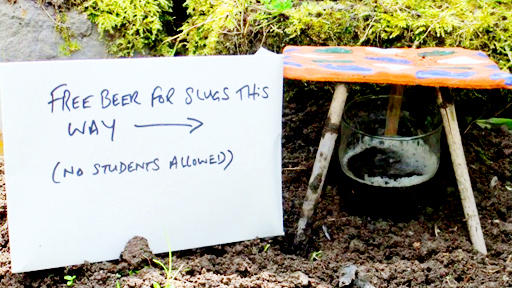 FREE BEER FOR SLUGS THIS
WAY →
(NO STUDENTS ALLOWED)